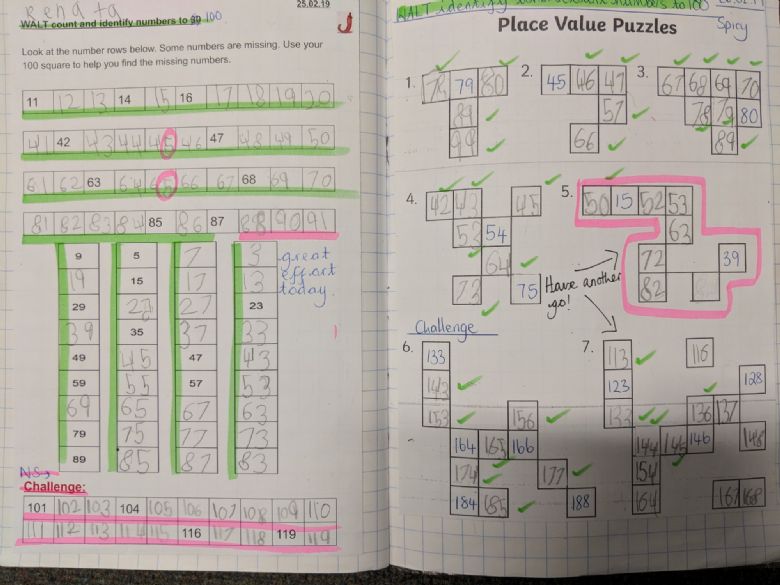 25.02.19
WALT count and identify numbers to 90 100
Look at the number rows below. Some numbers are missing. Use your
100 square to help you find the missing numbers.
11 12 13 14 15 16 17 18 19 20
41 42 43 44 45 46 47 48 49 50
61 62 63 64 65 66 67 68 69 70
81 82 83 84 85 86 87 88 90 91
9 5 7 3
19 15 17 13
29 27 23
39 35 37 33
49 45 47 43
59 55 57 53
69 65 67 63
79 75 77 73
89 85 87 83
great
effort
today.
Challenge:
101 102 103 104 105 106 107 108 109 110
111 112 113 114 115 116 117 118 119 119
WALT identify numbers to 100
Place Value Puzzles
Spicy
1. 78 79 80
89
99
2. 45 46 47
57
66
3. 67 68 69 70
78 79 80
89
4. 42 43 45
53 54
64
73 75
5. 50 15 52 53
63
72 39
82
Have another
go!
Challenge
6. 133
143
153 156
164 165 166
174 177
184 185 188
7. 113 116
123 128
133 136 137
144 145 146 148
154
164 167 168